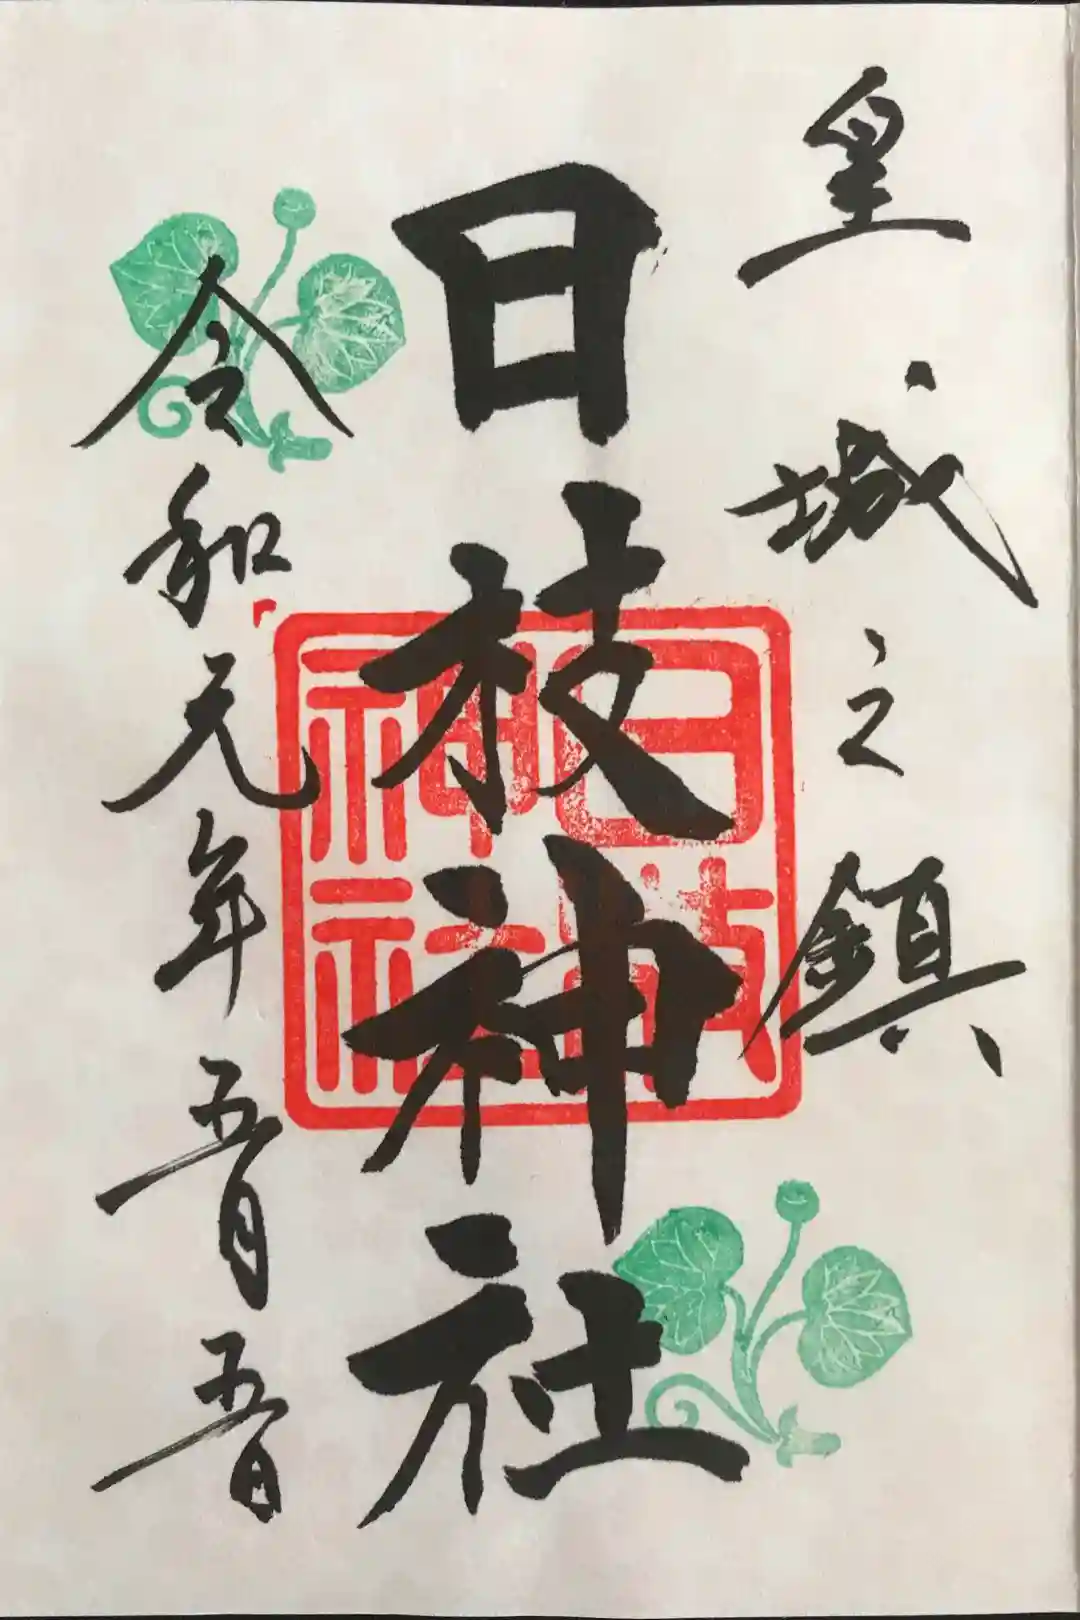 皇城之鎮
日枝神社
日枝
神社
令和元年五月五日